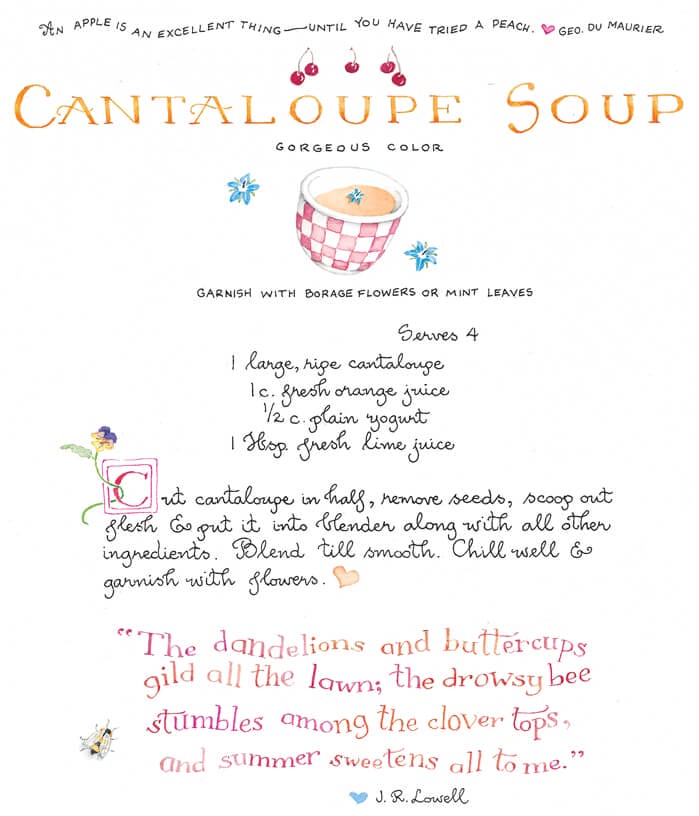 An apple is an excellent thing—until you have tried a peach. ♥ Geo. du Maurier
Cantaloupe Soup
Gorgeous Color
Garnish with borage flowers or mint leaves
Serves 4
1 large, ripe cantaloupe
1 c. fresh orange juice
1/2 c. plain yogurt
1 Tbsp. fresh lime juice
Cut cantaloupe in half, remove seeds, scoop out
flesh & put it into blender along with all other
ingredients. Blend till smooth. Chill well &
garnish with flowers.
“The dandelions and buttercups
gild all the lawn; the drowsy bee
stumbles among the clover tops,
and summer sweetens all to me.”
J. R. Lowell